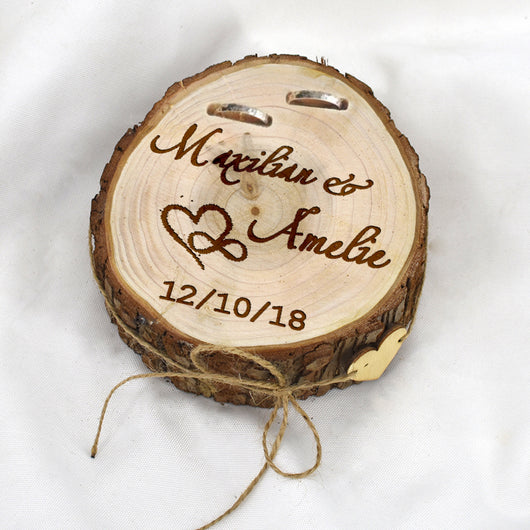 Maxilian &
Amelie
12/10/18